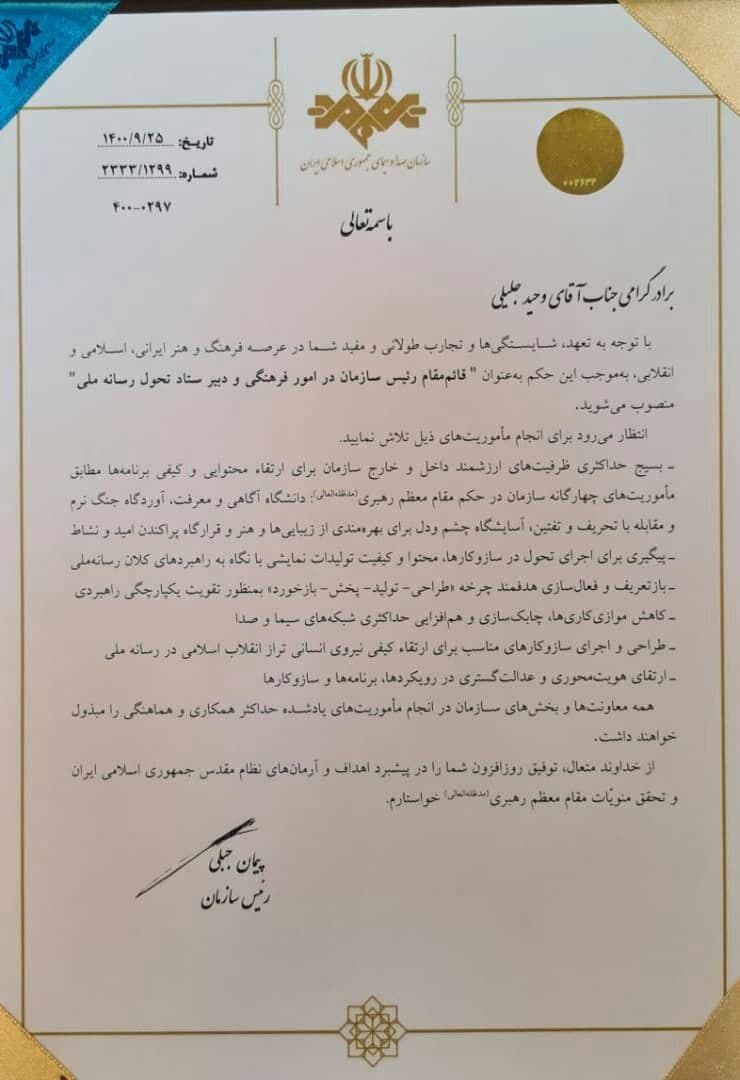 سازمان صدا و سیمای جمهوری اسلامی ایران
تاریخ: ۱۴۰۰/۹/۲۵
شماره: ۲۳۳۳/۱۲۹۹
۴۰۰-۰۲۹۷
۰۰۲۶۳۴
باسمه‌تعالی
برادر گرامی جناب آقای وحید جلیلی
با توجه به تعهد، شایستگی‌ها و تجارب طولانی و مفید شما در عرصه فرهنگ و هنر ایرانی، اسلامی و
انقلابی، به‌موجب این حکم به‌عنوان " قائم‌مقام رئیس سازمان در امور فرهنگی و دبیر ستاد تحول رسانه ملی"
منصوب می‌شوید.
انتظار می‌رود برای انجام مأموریت‌های ذیل تلاش نمایید.
ـ بسیج حداکثری ظرفیت‌های ارزشمند داخل و خارج سازمان برای ارتقاء محتوایی و کیفی برنامه‌ها مطابق
مأموریت‌های چهارگانه سازمان در حکم مقام معظم رهبری(مدظله‌العالی): دانشگاه آگاهی و معرفت، آوردگاه جنگ نرم
و مقابله با تحریف و تفتین، آسایشگاه چشم ودل برای بهره‌مندی از زیبایی‌ها و هنر و قرارگاه پراکندن امید و نشاط
ـ پیگیری برای اجرای تحول در سازوکارها، محتوا و کیفیت تولیدات نمایشی با نگاه به راهبردهای کلان رسانه‌ملی
ـ بازتعریف و فعال‌سازی هدفمند چرخه «طراحی- تولید- پخش- بازخورد» بمنظور تقویت یکپارچگی راهبردی
ـ کاهش موازی‌کاری‌ها، چابک‌سازی و هم‌افزایی حداکثری شبکه‌های سیما و صدا
ـ طراحی و اجرای سازوکارهای مناسب برای ارتقاء کیفی نیروی انسانی تراز انقلاب اسلامی در رسانه ملی
ـ ارتقای هویت‌محوری و عدالت‌گستری در رویکردها، برنامه‌ها و سازوکارها
همه معاونت‌ها و بخش‌های سازمان در انجام مأموریت‌های یادشده حداکثر همکاری و هماهنگی را مبذول
خواهند داشت.
از خداوند متعال، توفیق روزافزون شما را در پیشبرد اهداف و آرمان‌های نظام مقدس جمهوری اسلامی ایران
و تحقق منویّات مقام معظم رهبری(مدظله‌العالی) خواستارم.
پیمان جبلی
رئیس سازمان